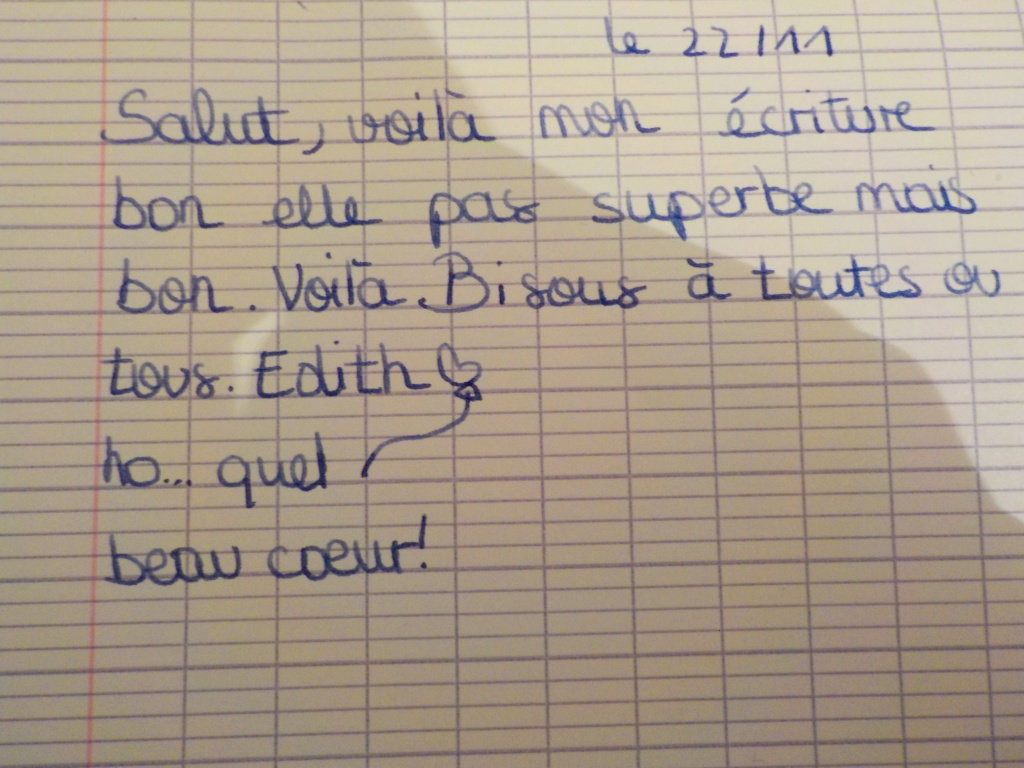 le 22/11
Salut, voilà mon écriture
bon elle pas superbe mais
bon. Voilà. Bisous à toutes ou
tous. Edith
ho... quel
beau coeur!